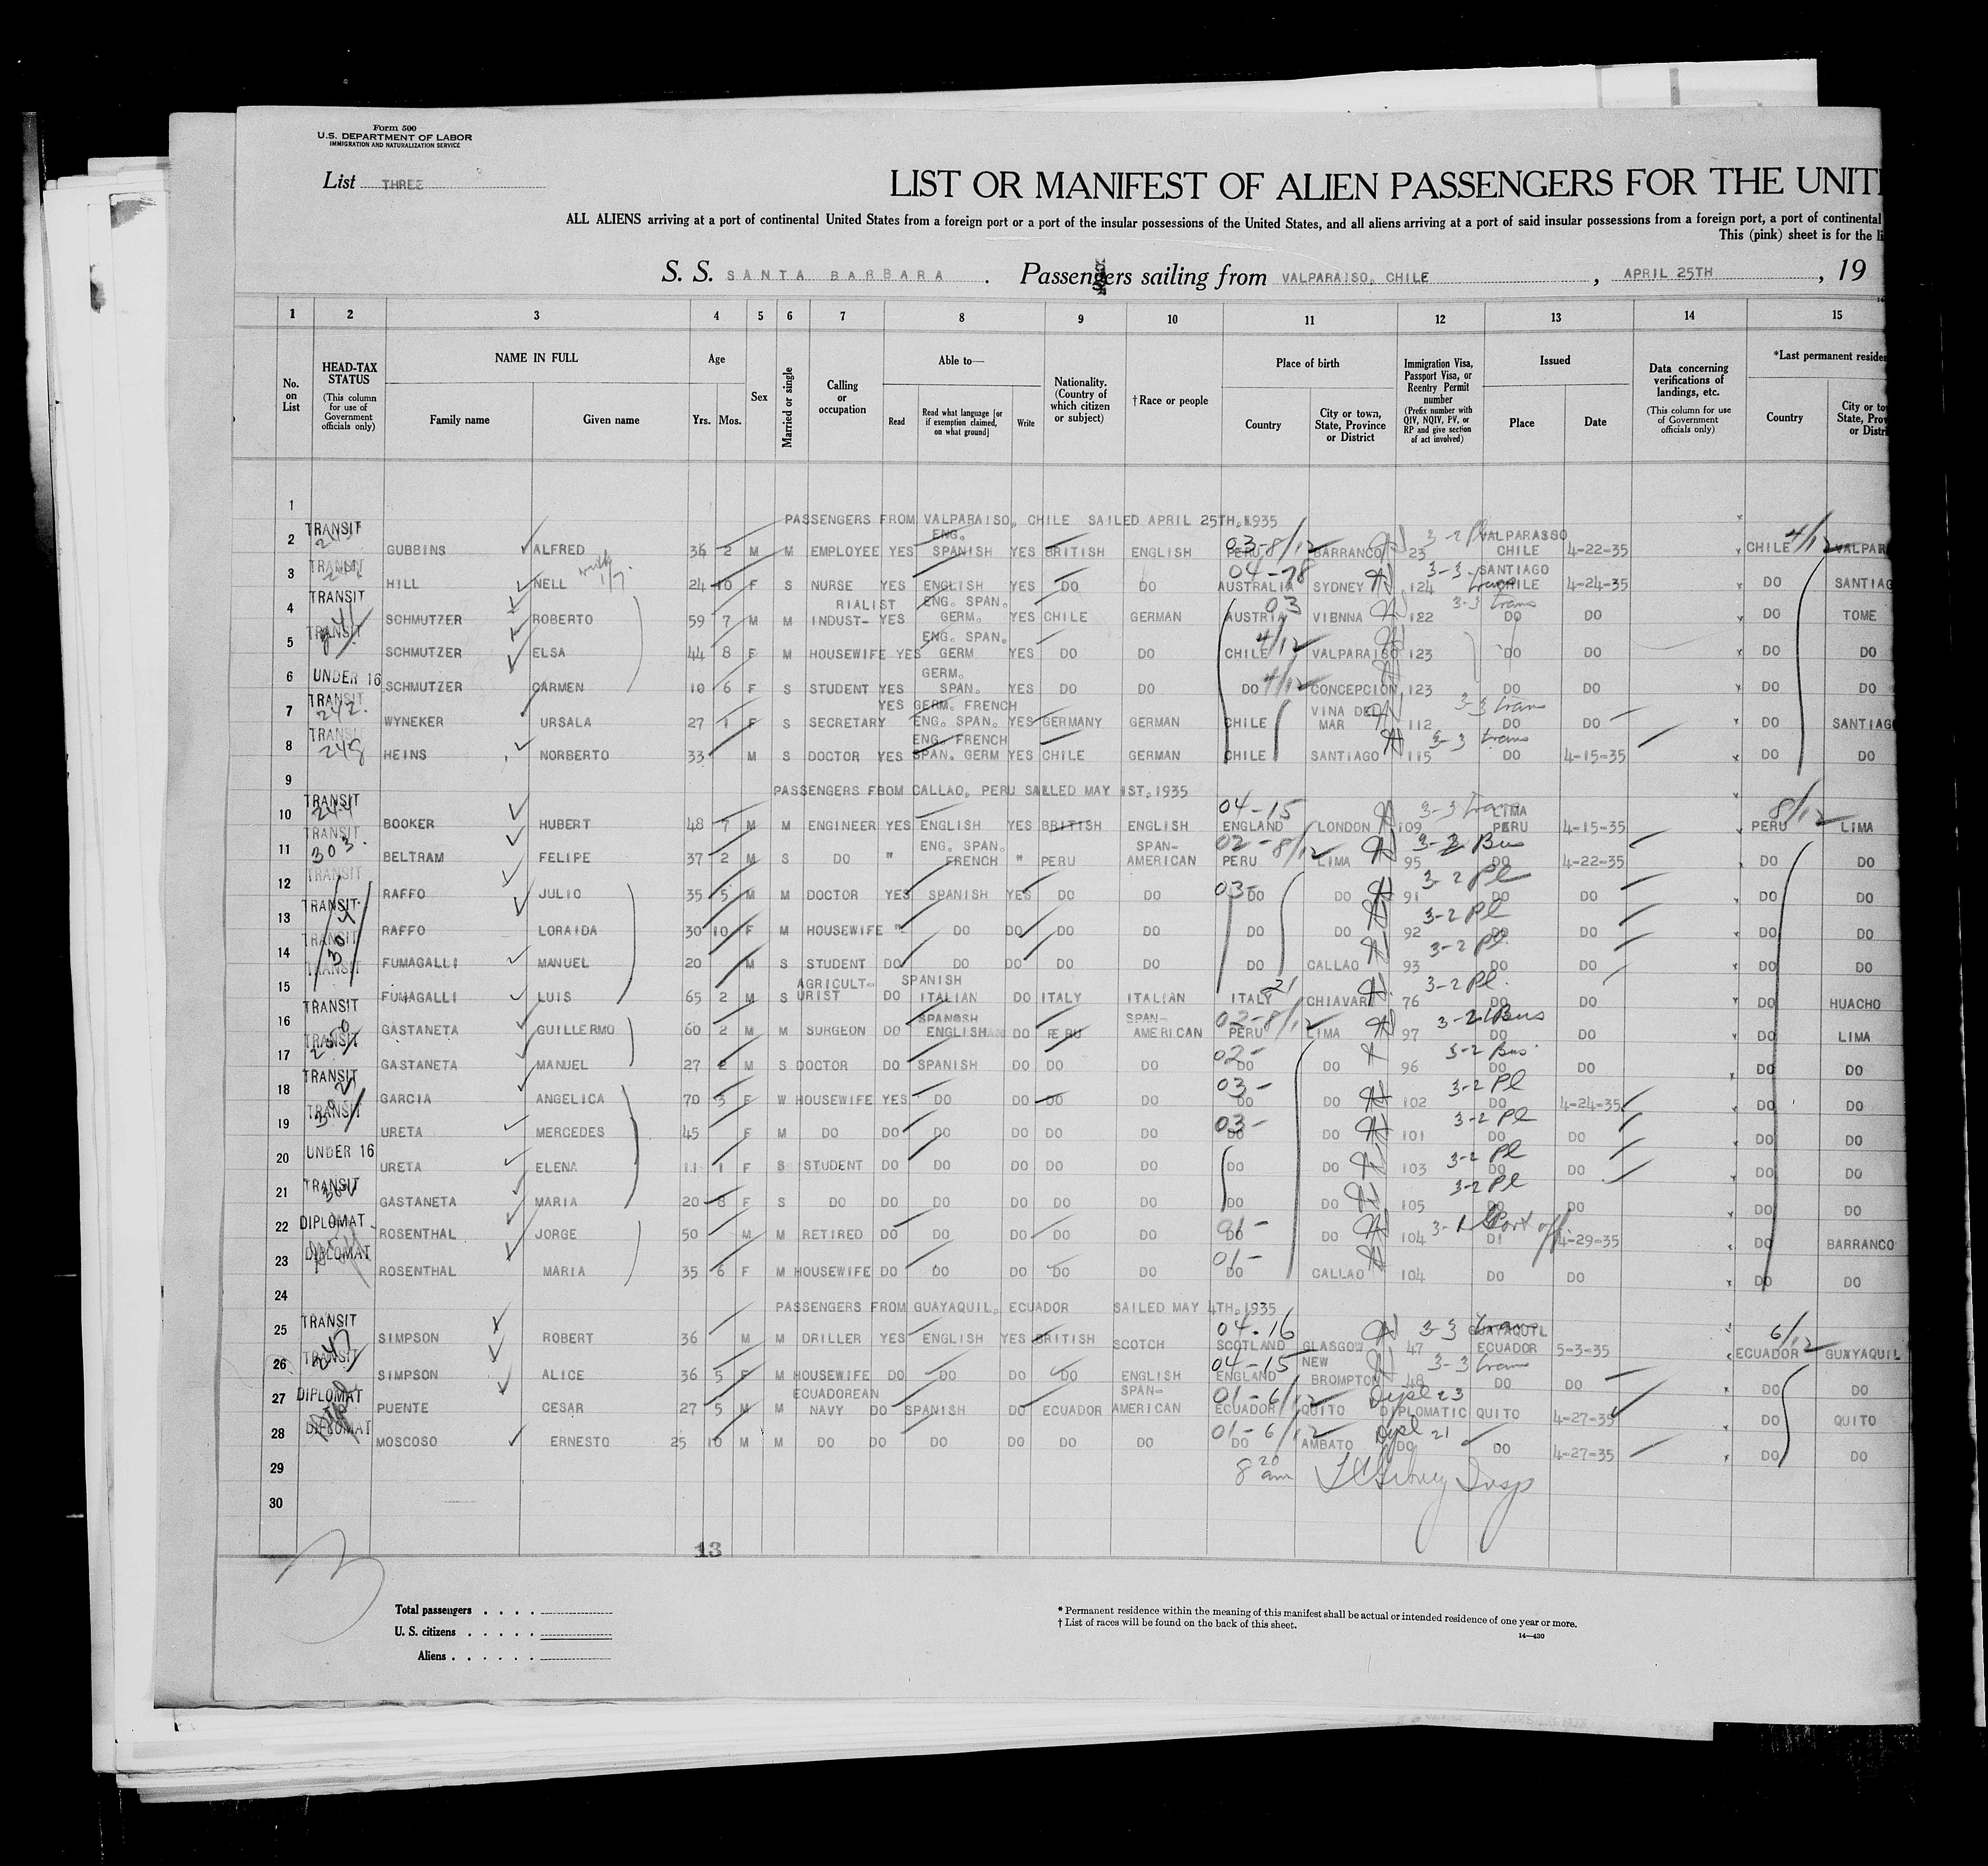 Form 500
U.S. DEPARTMENT OF LABOR
IMMIGRATION AND NATURALIZATION SERVICE
List THREE
LIST OR MANIFEST OF ALIEN PASSENGERS FOR THE UNIT
ALL ALIENS arriving at a port of continental United States from a foreign port or a port of the insular possessions of the United States, and all aliens arriving at a port of said insular possessions from a foreign port, a port of continental
This (pink) sheet is for the li
S. S. SANTA BARBARA . Passengers sailing from VALPARAISO, CHILE , APRIL 25TH , 19
1 2 3 4 5 6 7 8 9 10 11 12 13 14 15
No. on List
HEAD-TAX STATUS (This column for use of Government officials only)
NAME IN FULL Family name Given name
Age Yrs. Mos.
Sex
Married or single
Calling or occupation
Able to— Read Read what language [or if exemption claimed, on what ground] Write
Nationality. (Country of which citizen or subject)
†Race or people
Place of birth Country City or town, State, Province or District
Immigration Visa, Passport Visa, or Reentry Permit number (Prefix number with QIV, NQIV, PV, or RP and give section of act involved)
Issued Place Date
Data concerning verifications of landings, etc. (This column for use of Government officials only)
*Last permanent reside Country City or to State, Prov or Distri
1
PASSENGERS FROM VALPARAISO, CHILE SAILED APRIL 25TH, 1935
2 TRANSIT GUBBINS ALFRED 36 2 M M EMPLOYEE YES ENG. SPANISH YES BRITISH ENGLISH 03-8/12 PERU BARRANCO 23 3-2 Pl VALPARASSO CHILE 4-22-35 CHILE 4/12 VALPAR
3 TRANSIT HILL NELL 24 10 F S NURSE YES ENGLISH YES DO DO 04-78 AUSTRALIA SYDNEY 124 3-3 trans SANTIAGO CHILE 4-24-35 DO SANTIAG
4 TRANSIT SCHMUTZER ROBERTO 59 7 M M INDUST-RIALIST YES ENG. SPAN. GERM. YES CHILE GERMAN 03 AUSTRIA VIENNA 122 3-3 trans DO DO DO TOME
5 TRANSIT SCHMUTZER ELSA 44 8 F M HOUSEWIFE YES ENG. SPAN. GERM YES DO DO 4/12 CHILE VALPARAISO 123 DO DO DO DO
6 UNDER 16 SCHMUTZER CARMEN 10 6 F S STUDENT YES GERM. SPAN. YES DO DO DO 4/12 CONCEPCION 123 DO DO DO DO
7 TRANSIT 247. WYNEKER URSALA 27 1 F S SECRETARY YES GERM. FRENCH ENG. SPAN. YES GERMANY GERMAN CHILE VINA DEL MAR 112 3-3 trans DO DO DO SANTIAGO
8 TRANSIT 248 HEINS NORBERTO 33 M S DOCTOR YES ENG. FRENCH SPAN. GERM YES CHILE GERMAN CHILE SANTIAGO 115 3-3 trans DO 4-15-35 DO DO
9
PASSENGERS FROM CALLAO, PERU SAILED MAY 1ST, 1935
10 TRANSIT 244 BOOKER HUBERT 48 7 M M ENGINEER YES ENGLISH YES BRITISH ENGLISH 04-15 ENGLAND LONDON 109 3-3 trans LIMA PERU 4-15-35 PERU 8/12 LIMA
11 TRANSIT 303. BELTRAM FELIPE 37 2 M S DO " ENG. SPAN. FRENCH " PERU SPAN-AMERICAN 02-8/12 PERU LIMA 95 3-2 Bus DO 4-22-35 DO DO
12 TRANSIT RAFFO JULIO 35 5 M M DOCTOR YES SPANISH YES DO DO 03- DO DO 91 3-2 Pl DO DO DO DO
13 TRANSIT RAFFO LORAIDA 30 10 F M HOUSEWIFE " DO DO DO DO DO DO 92 3-2 Pl DO DO DO DO
14 TRANSIT FUMAGALLI MANUEL 20 M S STUDENT DO DO DO DO DO DO CALLAO 93 3-2 Pl. DO DO DO DO
15 TRANSIT FUMAGALLI LUIS 65 2 M S AGRICULT-URIST DO SPANISH ITALIAN DO ITALY ITALIAN ITALY 21 CHIAVARI 76 3-2 Pl. DO DO DO HUACHO
16 TRANSIT GASTANETA GUILLERMO 60 2 M M SURGEON DO SPANOSH ENGLISH DO PERU SPAN-AMERICAN 02-8/12 PERU LIMA 97 3-2 Bus DO DO DO LIMA
17 TRANSIT GASTANETA MANUEL 27 2 M S DOCTOR DO SPANISH DO DO DO 02- DO DO 96 3-2 Bus DO DO DO DO
18 TRANSIT GARCIA ANGELICA 70 3 F W HOUSEWIFE YES DO DO DO DO 03- DO DO 102 3-2 Pl DO 4-24-35 DO DO
19 TRANSIT URETA MERCEDES 45 F M DO DO DO DO DO DO 03- DO DO 101 3-2 Pl DO DO DO DO
20 UNDER 16 URETA ELENA 11 1 F S STUDENT DO DO DO DO DO DO DO 103 3-2 Pl DO DO DO DO
21 TRANSIT GASTANETA MARIA 20 8 F S DO DO DO DO DO DO DO DO 105 3-2 Pl DO DO DO DO
22 DIPLOMAT ROSENTHAL JORGE 50 M M RETIRED DO DO DO DO DO DO 104 3-1 off. DI 4-29-35 DO BARRANCO
23 DIPLOMAT ROSENTHAL MARIA 35 6 F M HOUSEWIFE DO DO DO DO DO 01- DO CALLAO 104 DO DO DO DO
24
PASSENGERS FROM GUAYAQUIL, ECUADOR SAILED MAY 4TH, 1935
25 TRANSIT SIMPSON ROBERT 36 M M DRILLER YES ENGLISH YES BRITISH SCOTCH 04.16 SCOTLAND GLASGOW 47 3-3 trans GUAYAQUIL ECUADOR 5-3-35 ECUADOR 6/12 GUAYAQUIL
26 TRANSIT SIMPSON ALICE 36 5 F M HOUSEWIFE DO DO DO DO ENGLISH 04-15 ENGLAND NEW BROMPTON 48 3-3 trans DO DO DO DO
27 DIPLOMAT PUENTE CESAR 27 5 M M ECUADOREAN NAVY DO SPANISH DO ECUADOR SPAN-AMERICAN 01-6/12 ECUADOR QUITO Dipl 23 DIPLOMATIC QUITO 4-27-35 DO QUITO
28 DIPLOMAT MOSCOSO ERNESTO 25 10 M M DO DO DO DO DO DO 01-6/12 DO AMBATO Dipl 21 DO DO 4-27-35 DO DO
29 8 20 am Insp
30
13
Total passengers . . . .
U. S. citizens . . . . .
Aliens . . . . . .
* Permanent residence within the meaning of this manifest shall be actual or intended residence of one year or more.
† List of races will be found on the back of this sheet.
14—430